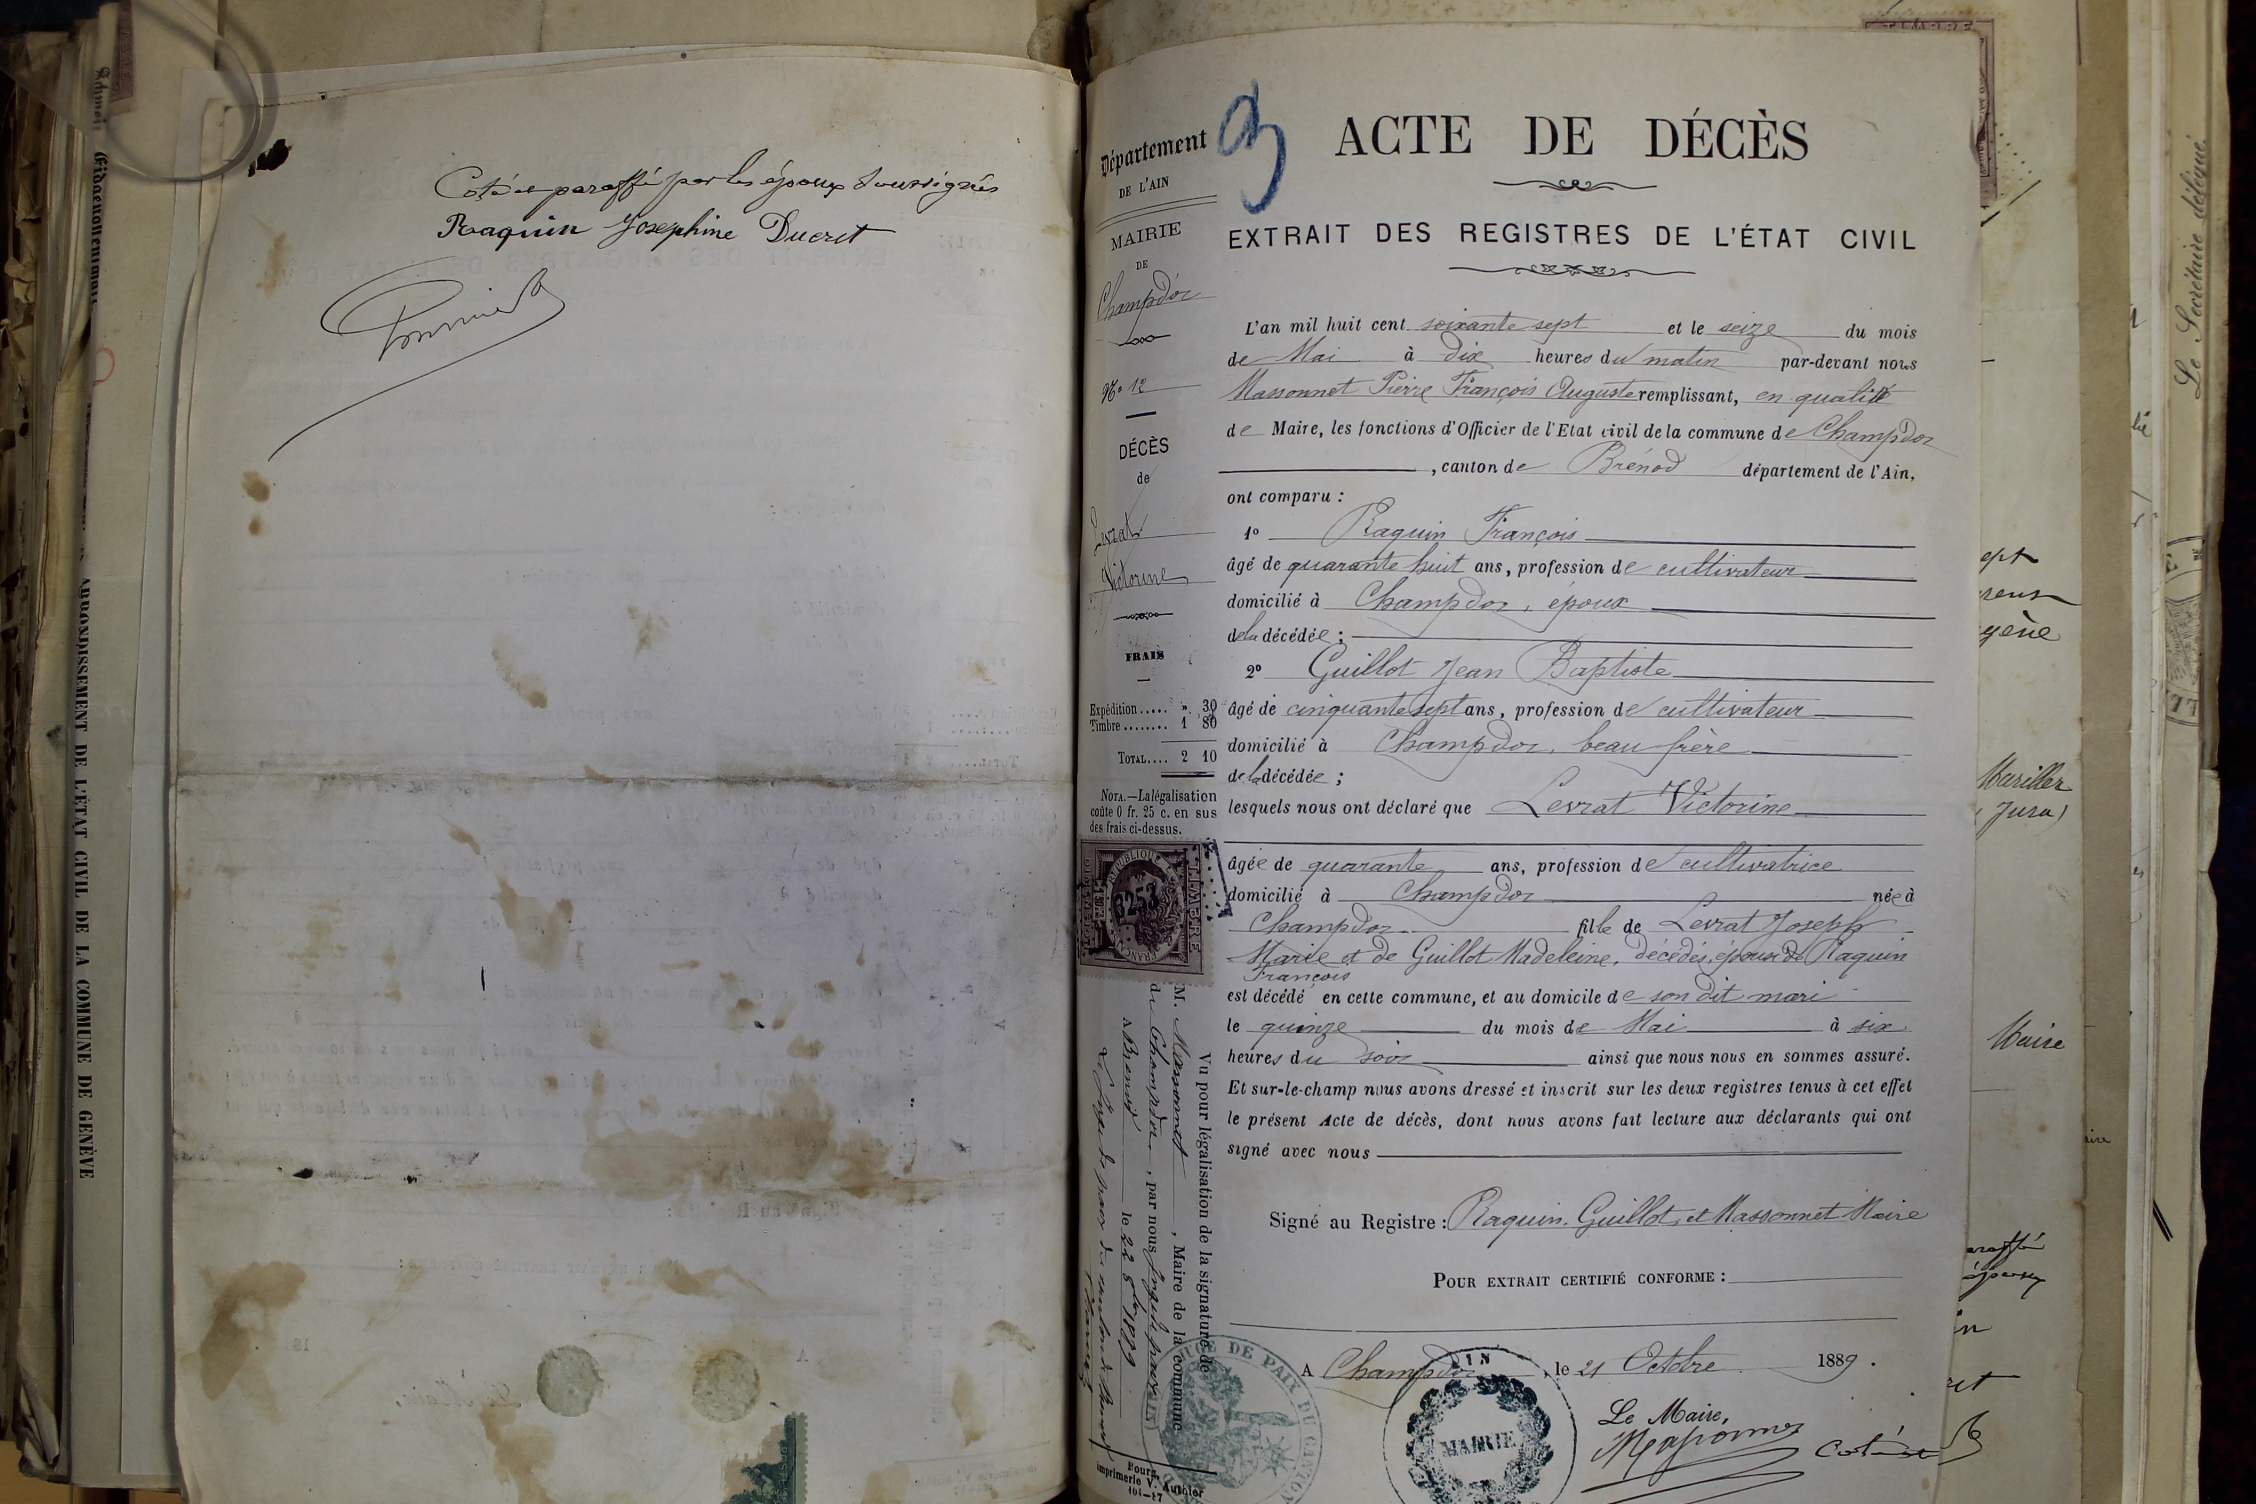 Coté et paraffé par les époux soussignés
Raquin Josephine Ducret
ARRONDISSEMENT DE L'ÉTAT CIVIL DE LA COMMUNE DE GENÈVE
Département
DE L'AIN
MAIRIE
DE
Champdor
No 12
DÉCÈS
de
Levrat
Victorine
FRAIS
Expédition..... ». 30
Timbre........ 1 80
TOTAL.... 2 10
NOTA.—La légalisation
coûte 0 fr. 25 c. en sus
des frais ci-dessus.
RÉPUBLIQUE
FRANÇAISE
TIMBRE
3253
Vu pour légalisation de la signature de
M. Massonnet, Maire de la commune
de Champdor, par nous Juge de paix
A Brenod le 22 8bre 1889
Le Juge de paix du canton de Brenod
Bourg,
Imprimerie V. Authier
101—17
ACTE DE DÉCÈS
EXTRAIT DES REGISTRES DE L'ÉTAT CIVIL
L'an mil huit cent soixante sept et le seize du mois
de Mai à dix heures du matin par-devant nous
Massonnet Pierre François Auguste remplissant, en qualité
de Maire, les fonctions d'Officier de l'Etat civil de la commune de Champdor
, canton de Brénod département de l'Ain,
ont comparu :
1º Raquin François
âgé de quarante huit ans, profession de cultivateur
domicilié à Champdor, époux
de la décédée ;
2º Guillot Jean Baptiste
âgé de cinquante sept ans, profession de cultivateur
domicilié à Champdor, beau frère
de la décédée ;
lesquels nous ont déclaré que Levrat Victorine
âgée de quarante ans, profession de cultivatrice
domicilié à Champdor née à
Champdor fille de Levrat Joseph
Marie et de Guillot Madeleine, décédés, épouse de Raquin
François
est décédé en cette commune, et au domicile de son dit mari
le quinze du mois de Mai à six
heures du soir ainsi que nous nous en sommes assuré.
Et sur-le-champ nous avons dressé et inscrit sur les deux registres tenus à cet effet
le présent Acte de décès, dont nous avons fait lecture aux déclarants qui ont
signé avec nous
Signé au Registre : Raquin. Guillot, et Massonnet Maire
POUR EXTRAIT CERTIFIÉ CONFORME :
A Champdor, le 21 Octobre 1889.
Le Maire,
Massonnet
Coté et
MAIRIE
JUGE DE PAIX DU CANTON
Le Secrétaire délégué.
Mariller
(Jura)
Maire